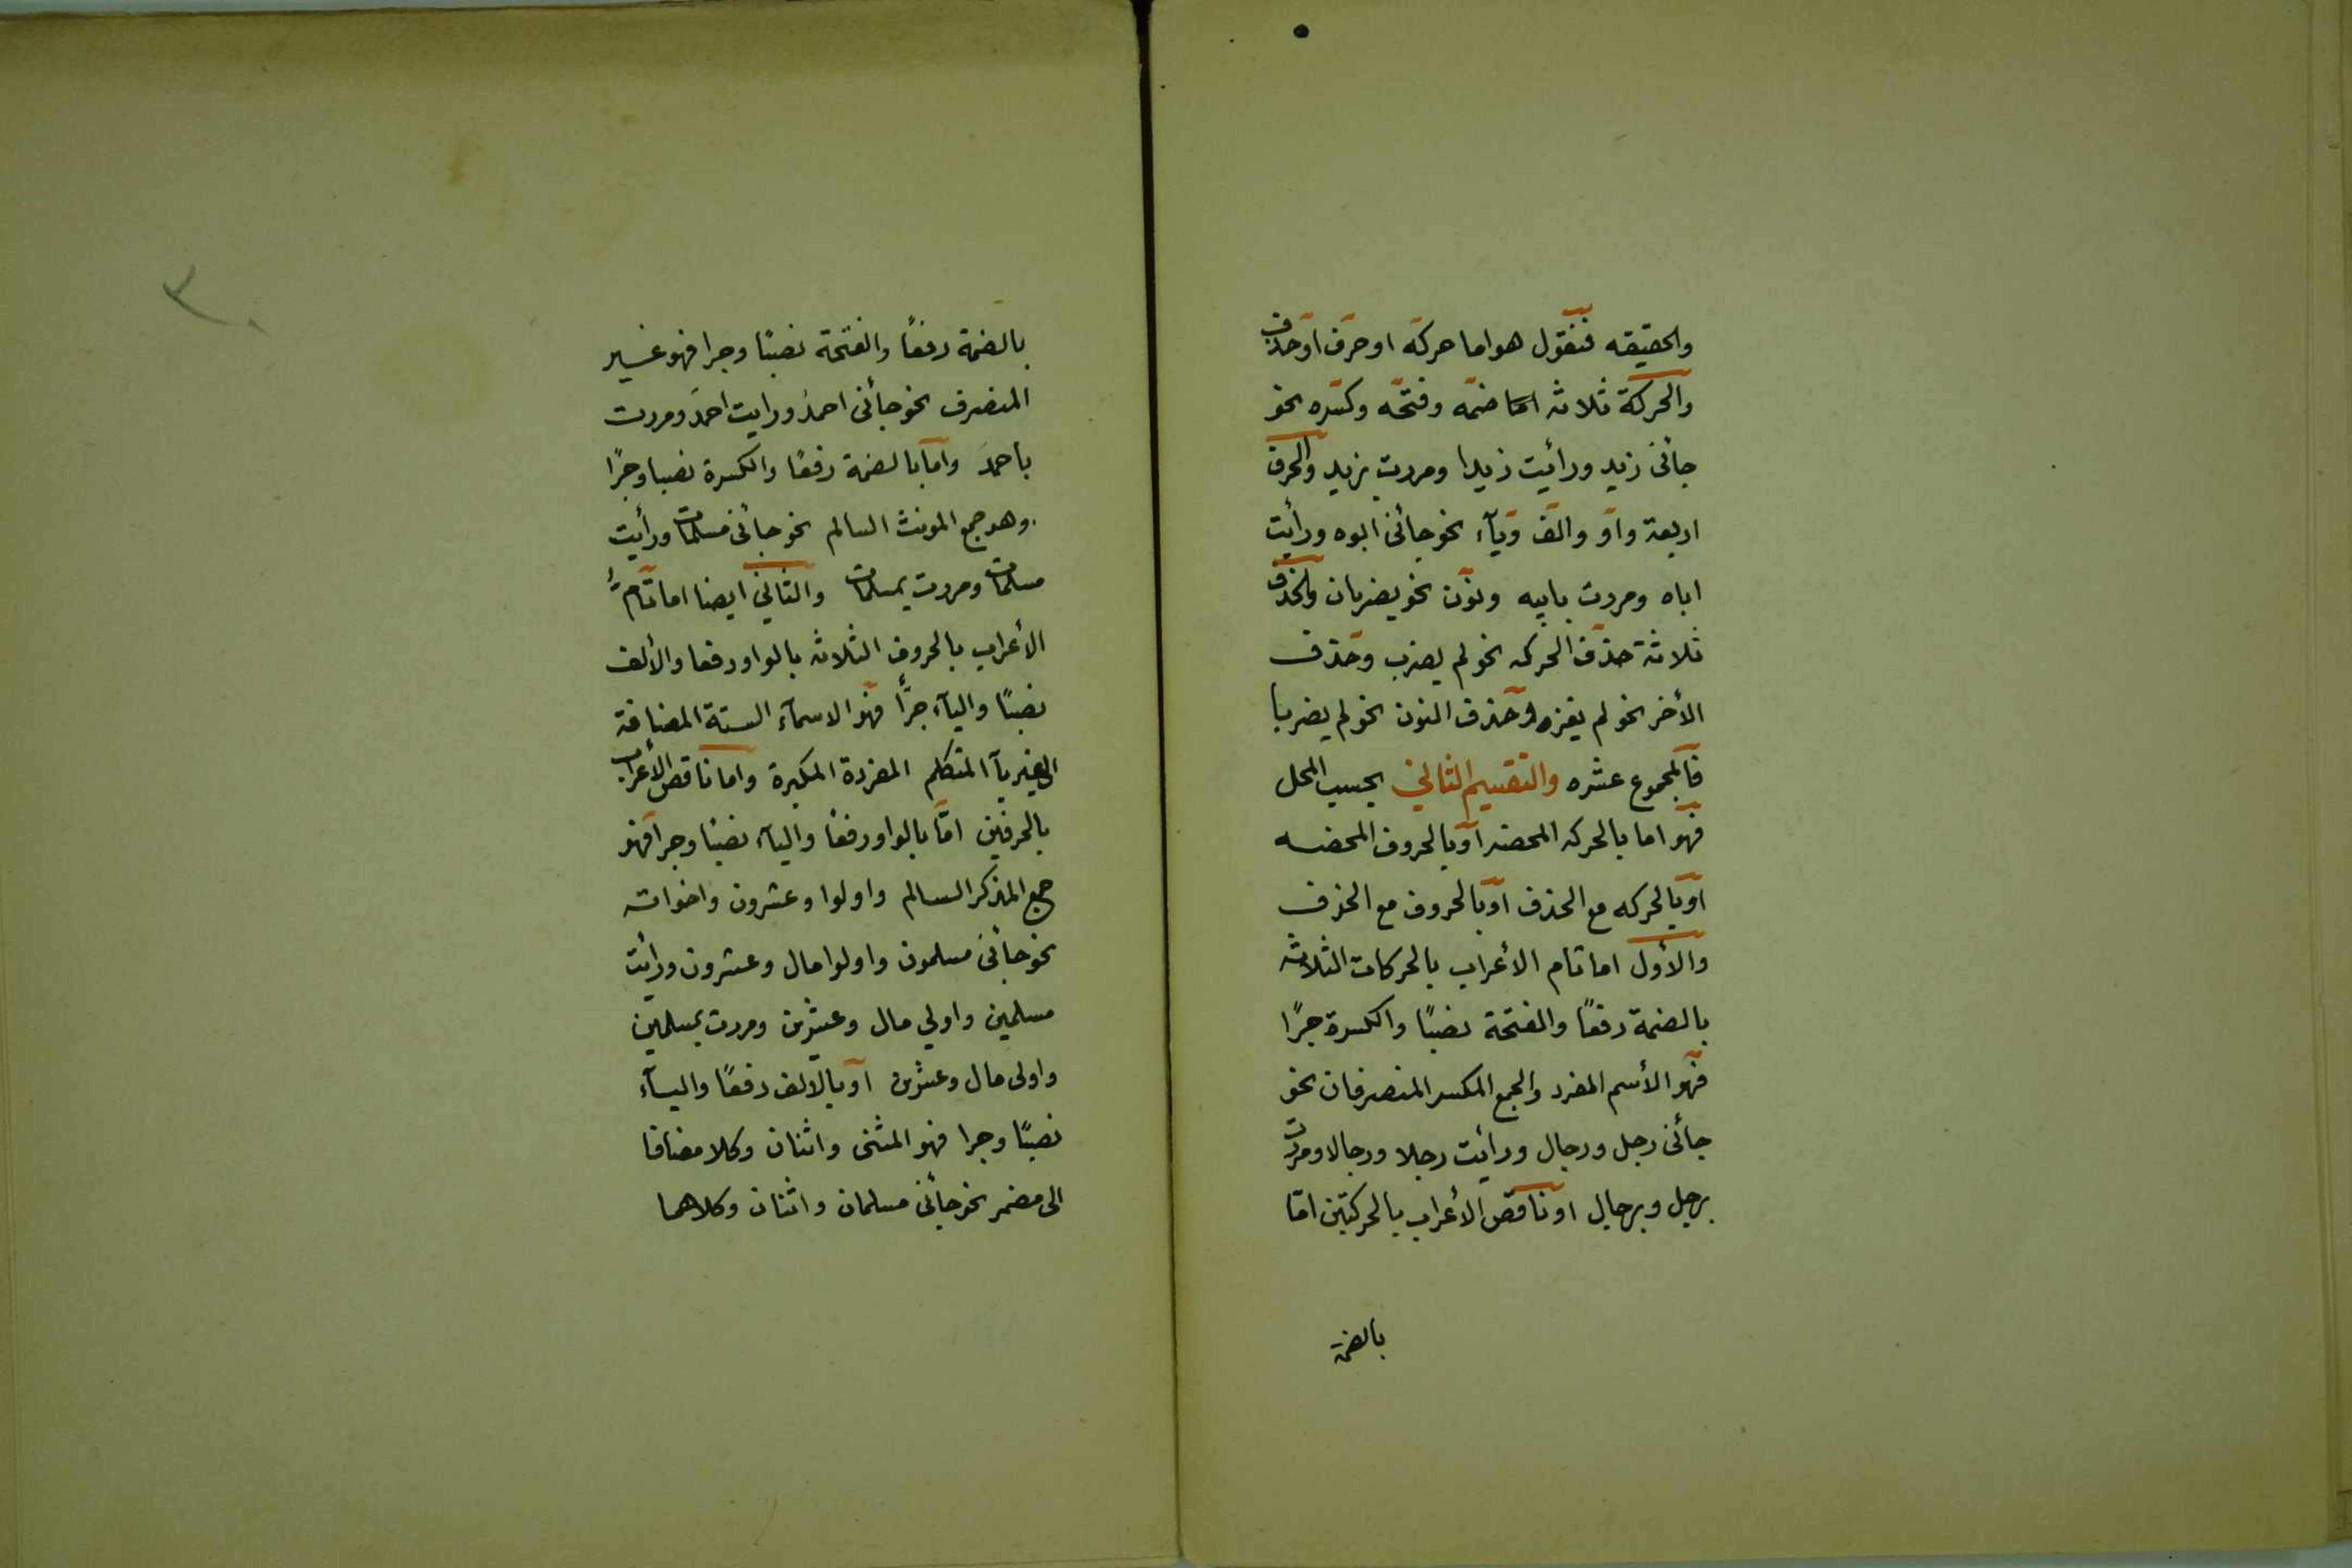 والحقيقه فنقول هو اما حركة او حرف او حذف
والحركة ثلاث اما ضمه وفتحه وكسره نحو
جائنى زيد ورأيت زيدا ومررت بزيد والحرف
اربعة واو والف ويآء نحو جائنى ابوه ورأيت
اباه ومررت بابيه ونون نحو يضربان والحذف
ثلاثة حذف الحركه نحو لم يضرب وحذف
الأخر نحو لم يغز وحذف النون نحو لم يضربا
فالمجموع عشره والتقسيم الثاني بحسب المحل
فهو اما بالحركه المحضه او بالحروف المحضه
او بالحركه مع الحذف او بالحروف مع الحذف
والأول اما تام الأعراب بالحركات الثلاثه
بالضمة رفعًا والفتحة نصبًا والكسرة جرًا
فهو الأسم المفرد والجمع المكسر المنصرفان نحو
جائنى رجل ورجال ورأيت رجلا ورجالا ومررت
برجل وبرجال او ناقص الأعراب بالحركتين امّا
بالضمة
٣٠
بالضمة رفعًا والفتحة نصبًا وجرا فهو غير
المنصرف نحو جائنى احمدُ ورايت احمدَ ومررت
باحمدَ واما بالضمة رفعًا والكسرة نصبا وجرًا
وهو جمع المونث السالم نحو جائنى مسلمات ورأيت
مسلمات ومررت بمسلمات والثاني ايضا اما تام
الأعراب بالحروف الثلاثه بالواو رفعا والألف
نصبًا واليآء جرًّا فهو الاسمآء الستة المضافة
الى غير يآ المتكلم المفردة المكبرة واما ناقص الأعراب
بالحرفين امّا بالواو رفعًا واليآء نصبًا وجرا فهو
جمع المذكر السالم واولوا وعشرون واخواته
نحو جائنى مسلمون واولوا مال وعشرون ورأيت
مسلمين واولي مال وعشرين ومررت بمسلمين
واولى مال وعشرين او بالالف رفعًا واليآء
نصبًا وجرا فهو المثنى واثنان وكلا مضافا
الى مضمر نحو جائنى مسلمان واثنان وكلاهما